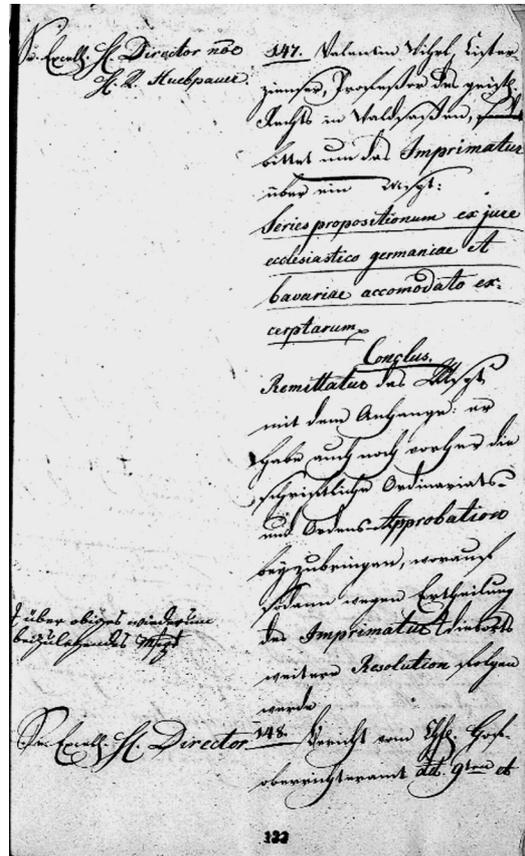 Se. Excell. H. Director noe
H. R. Huebpauer.
147. Valentin Vihrl, Cister
zienser, Professor des geistl.
Rechts in Waldsassen,
bittet um das Imprimatur
über ein Mspt:
Series propositionum ex jure
ecclesiastico germaniae et
bavariae accomodato ex-
cerptarum
Conclus.
Remittatur das Mspt
mit dem Anhange: er
habe auch noch vorher die
schriftliche Ordinariats-
und Ordens-Approbation
beyzubringen, worauf
sodann wegen Ertheilung
des Imprimatur dießorts
weitere Resolution folgen
werde
über obiges wiederum
beizulegendes Mspt
Se. Excell. H. Director.
148. Bericht vom Hof-
oberrichteramt dd. 9ten et
133